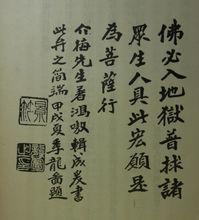 佛必入地獄普拯諸
眾生人具此宏願是
為菩薩行
介梅先生著鴻嗷輯成爰書
此弁之简端 甲戌夏季龍 題